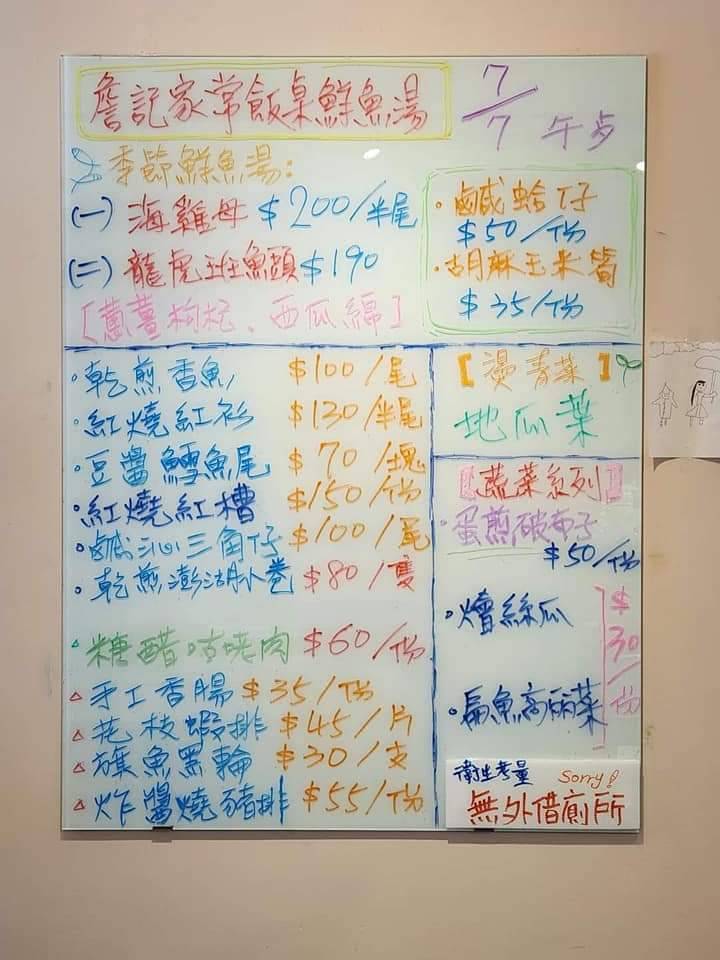 詹記家常飯桌鮮魚湯
7/7 午步
季節鮮魚湯：
(一) 海雞母 $200/半尾
(二) 龍虎班魚頭 $190
[蔥薑枸杞、西瓜綿]
・鹹蛤仔
$50/份
・胡麻玉米筍
$35/份
・乾煎香魚 $100/尾
・紅燒紅衫 $130/半尾
・豆醬鱈魚尾 $70/塊
・紅燒紅槽 $150/份
・鹹沁三角仔 $100/尾
・乾煎澎湖小卷 $80/隻
糖醋咕咾肉 $60/份
手工香腸 $35/份
花枝蝦排 $45/片
旗魚黑輪 $30/支
炸醬燒豬排 $55/份
【燙青菜】
地瓜葉
【蔬菜系列】
・蛋煎破布子
$50/份
・燴絲瓜
・扁魚高丽菜
$30/份
衛生考量 Sorry!
無外借廁所